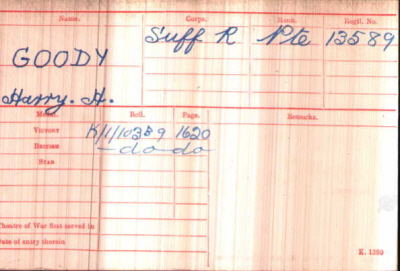 Name. Corps. Rank. Regtl. No.
GOODY Suff R Pte 13589
Harry. H.
Medal Roll. Page. Remarks.
VICTORY K/1/103B9 1620
BRITISH —do—do
STAR
Theatre of War first served in
Date of entry therein
K. 1380